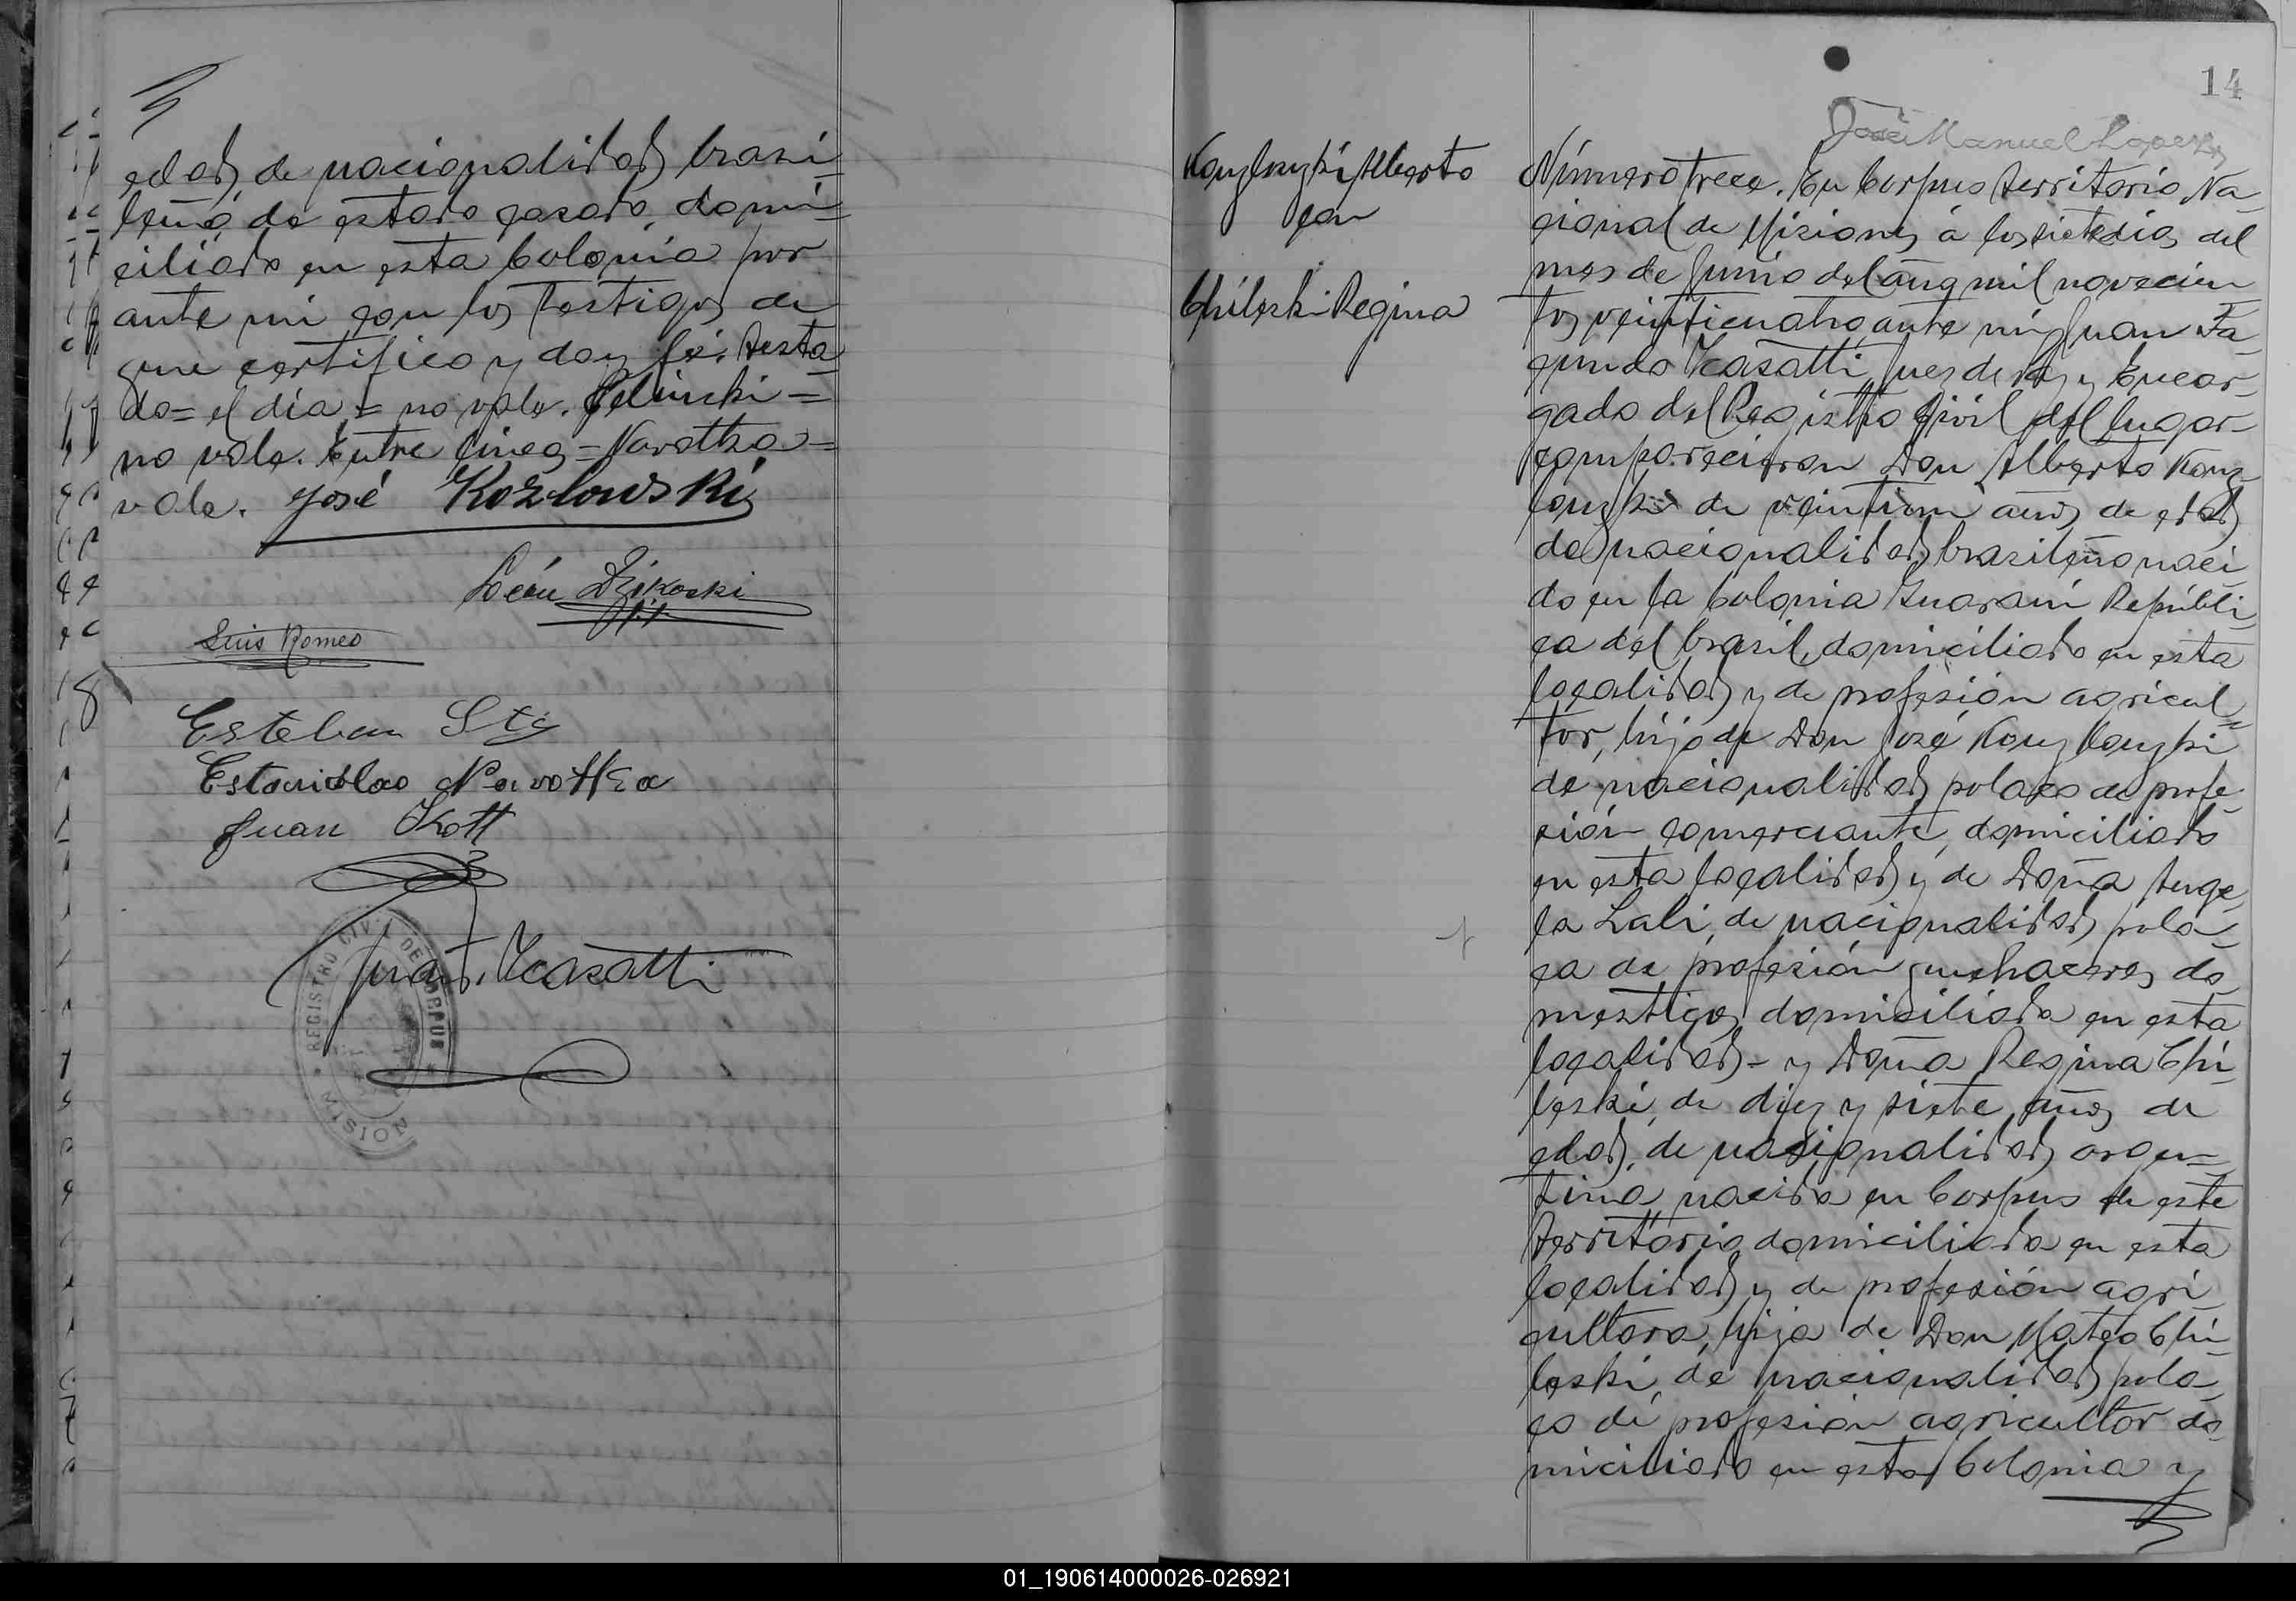 edad, de nacionalidad brasi-
leña de estado casado, domi-
ciliado en esta Colonia por
ante mi con los testigos de
que certifico y doy fé. Testa-
do = el día = no vale. Pelinski =
no vale. Entre linea = Navattka =
vale. José Kozlowski
León Dzikoski
Luis Romeo
Esteban
Estanislao
Juan Kott
Juan F. Ycasatti
REGISTRO CIVIL DE CORPUS
MISION
14
José Manuel Lopez
Kouzlouzki Alberto
con
Chileski Regina
Número trece. En Corpus territorio Na-
cional de Misiones á los siete dias del
mes de Junio del año mil novecien-
tos veinticuatro, ante mi Juan Fa-
cundo Ycasatti Juez de Paz y Encar-
gado del Registro Civil del lugar
comparecieron Don Alberto Kouz-
louzki de veintiun años de edad
de nacionalidad brasileño naci-
do en la Colonia Guarani Repúbli-
ca del brasil, domiciliado en esta
localidad y de profesión agricul-
tor, hijo de Don José Kouzlouzki
de nacionalidad polaco de profe-
sión comerciante, domiciliado
en esta localidad y de Doña Ange-
la Lali, de nacionalidad pola-
ca de profesión quehaceres do-
mesticos domiciliada en esta
localidad - y Doña Regina Chi-
leski, de diez y siete años de
edad, de nacionalidad argen-
tina, nacida en Corpus de este
territorio, domiciliada en esta
localidad y de profesión agri-
cultora, hija de Don Mateo Chi-
leski, de nacionalidad pola-
co de profesión agricultor do-
miciliado en esta Colonia y
01_190614000026-026921